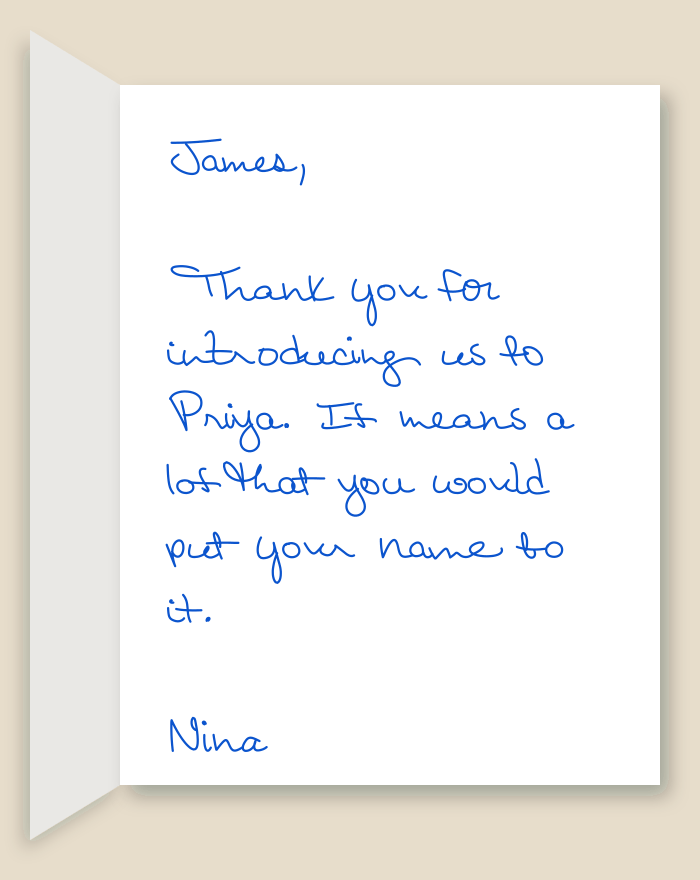 James,
Thank you for
introducing us to
Priya. It means a
lot that you would
put your name to
it.
Nina